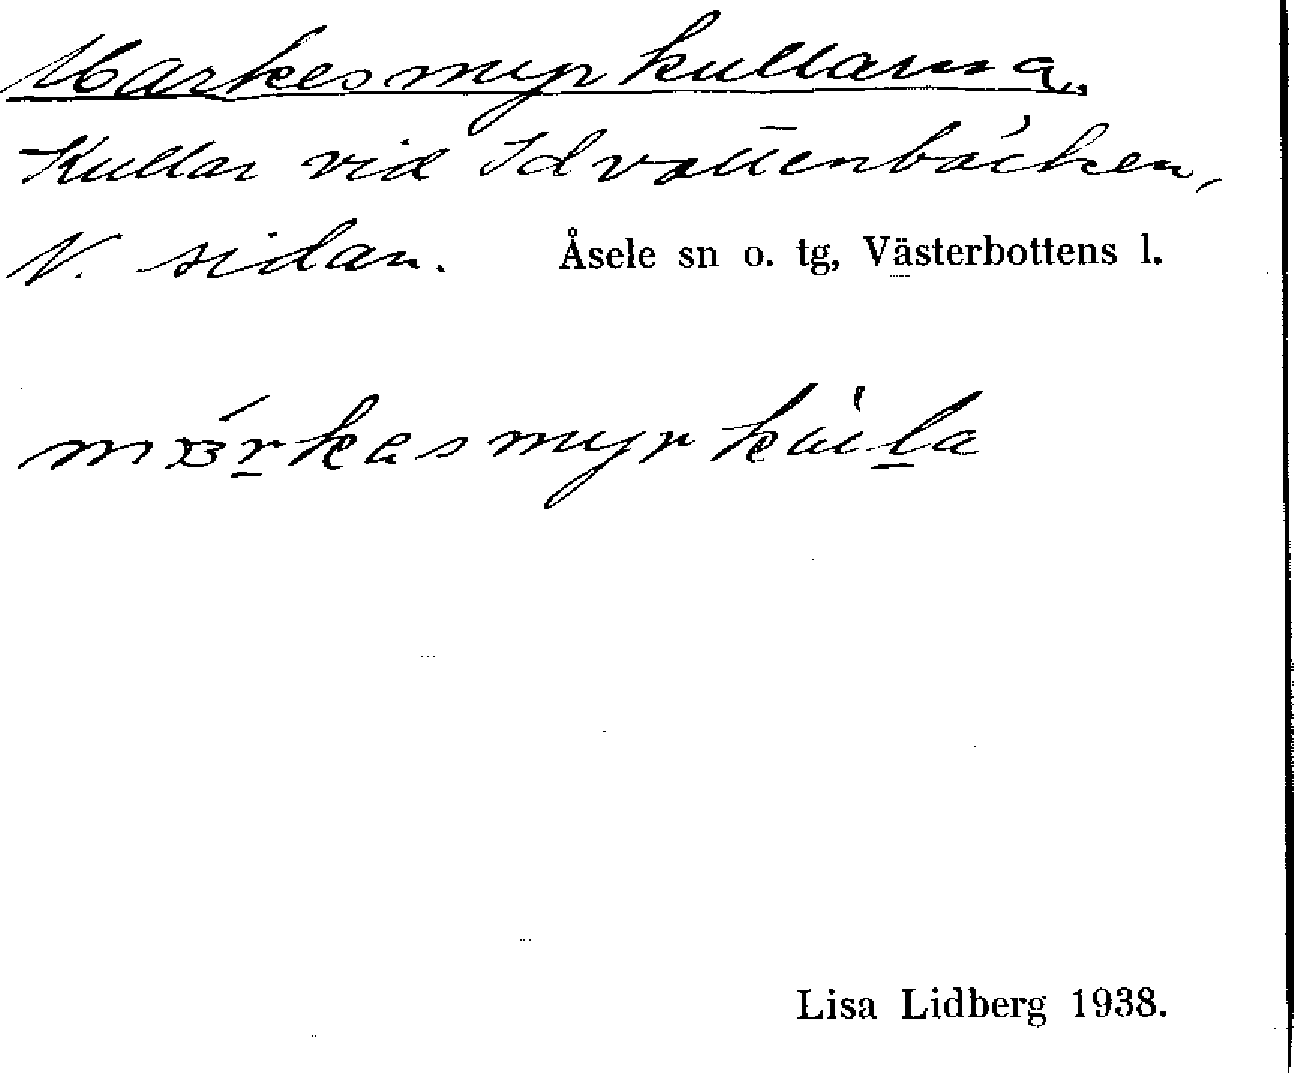 Markesmyrkullarna.
Kullar vid Idvattenbäcken,
N. sidan. Åsele sn o. tg, Västerbottens l.
Lisa Lidberg 1938.